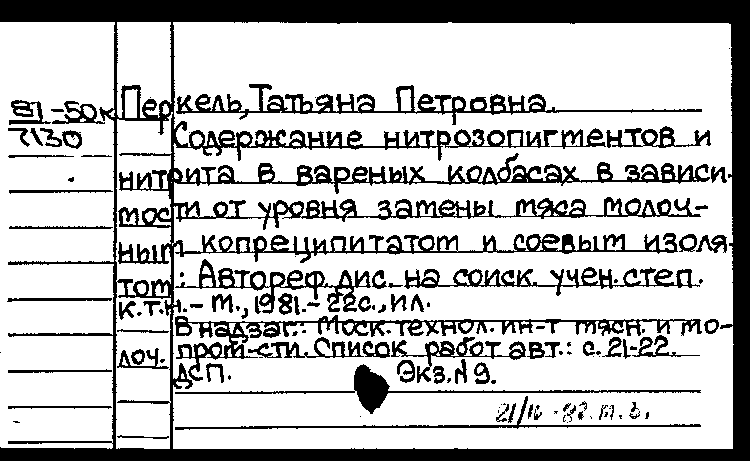 81-50к Перкель, Татьяна Петровна.
7130 Содержание нитрозопигментов и
нитрита в вареных колбасах в зависи-
мости от уровня замены мяса молоч-
ным копреципитатом и соевым изоля-
том : Автореф. дис. на соиск. учен. степ.
к.т.н. - М., 1981. - 22с., ил.
В надзаг.: Моск. технол. ин-т мясн. и мо-
лоч. пром-сти. Список работ авт.: с. 21-22.
ДСП. Экз. № 9.